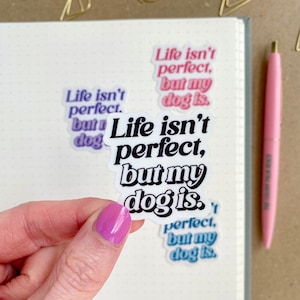 Life isn't
perfect,
but my
dog is.
Life isn't
perfect.
but m
dog
Life isn't
perfect,
but my
dog is.
't
perfect,
but my
dog is.